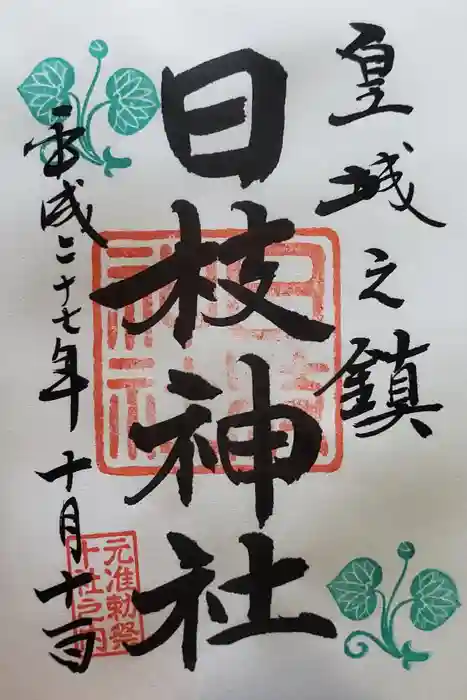 皇城之鎮
日枝神社
平成二十七年十月十一日
日枝神社
元准勅祭
十社之内